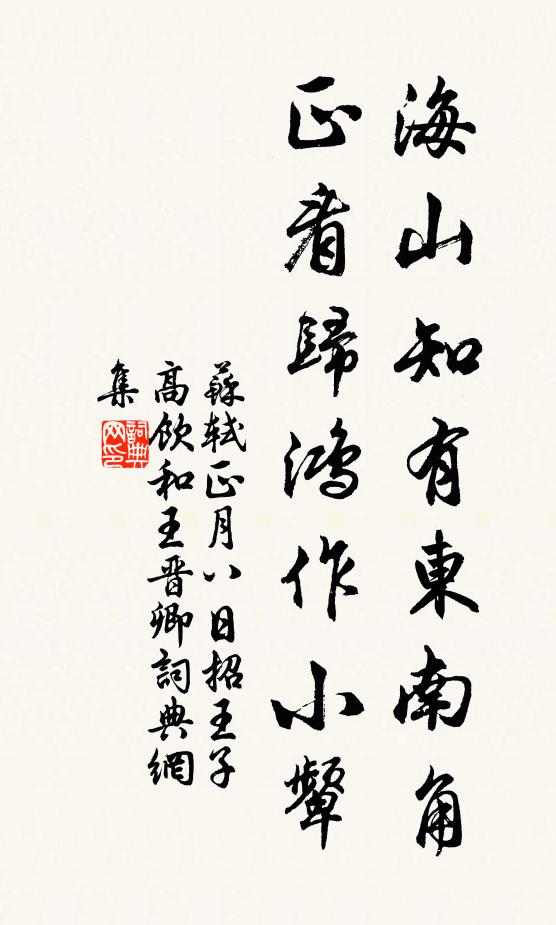 海山知有東南角
正看歸鴻作小顰
蘇軾正月八日招王子
高飲和王晉卿詞典網
集
詞典
网印